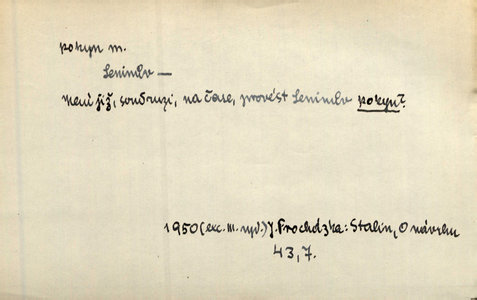 pokyn m.
Leninův —
Není již, soudruzi, na čase, provést Leninův pokyn?
1950 (exc. m. vyd.) J. Procházka: Stalin, O návrhu
43, 7.